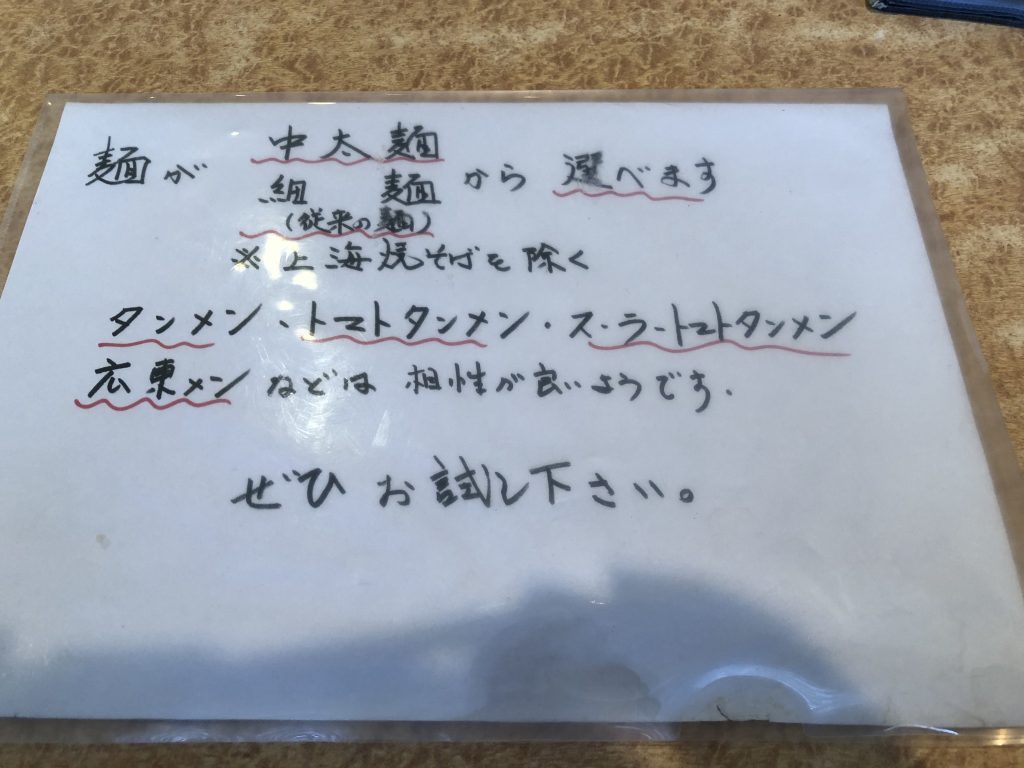 麺が 中太麺 から 選べます
細 麺
(従来の麺)
※上海焼そばを除く
タンメン、トマトタンメン・スーラートマトタンメン
広東メン などは 相性が良いようです.
ぜひ お試し下さい。